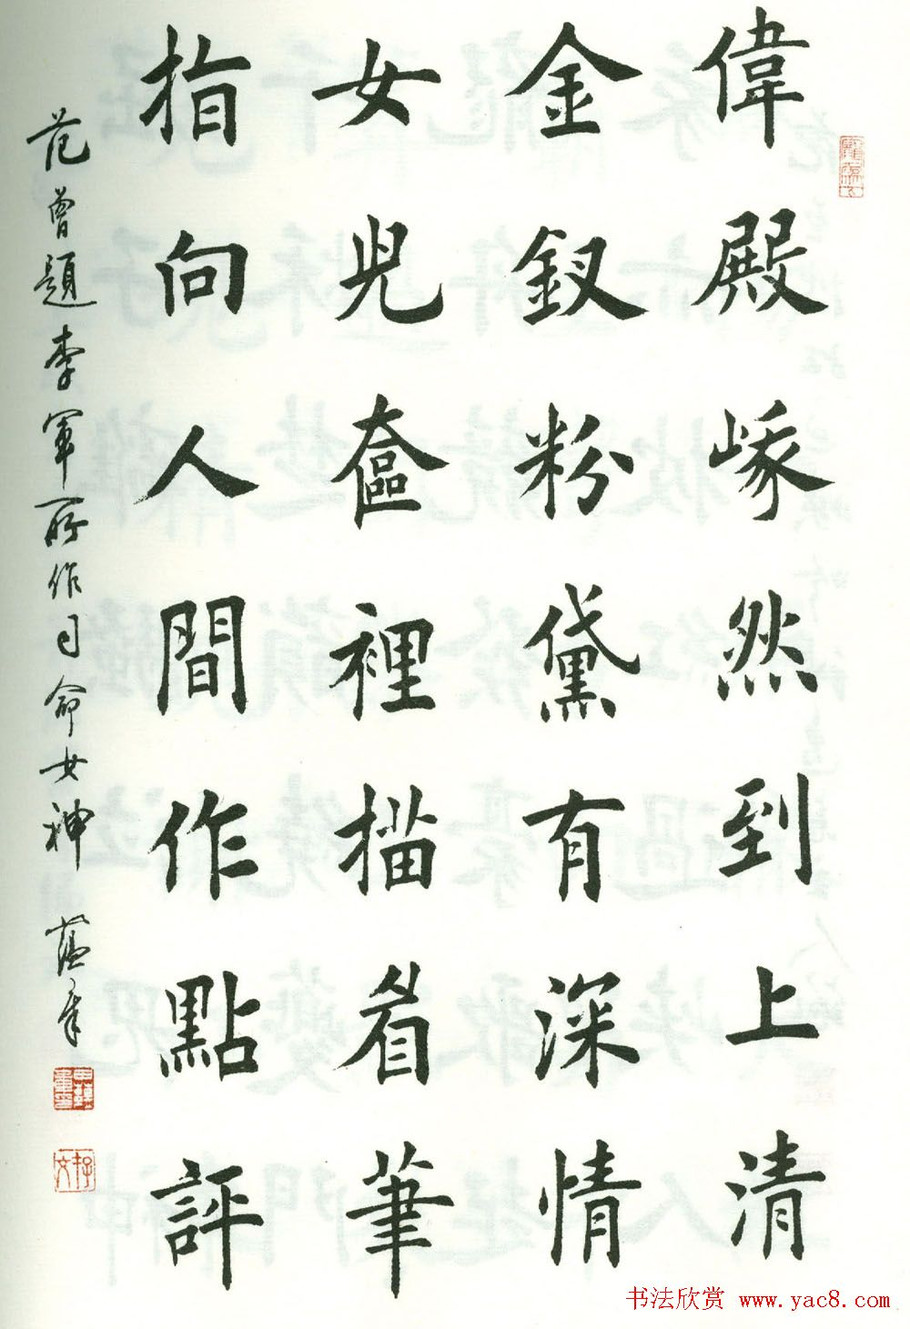 偉殿峩然到上清
金釵粉黛有深情
女兒奩裡描眉筆
指向人間作點評
范曾題李軍所作司命女神 蕴章
书法欣赏 www.yac8.com